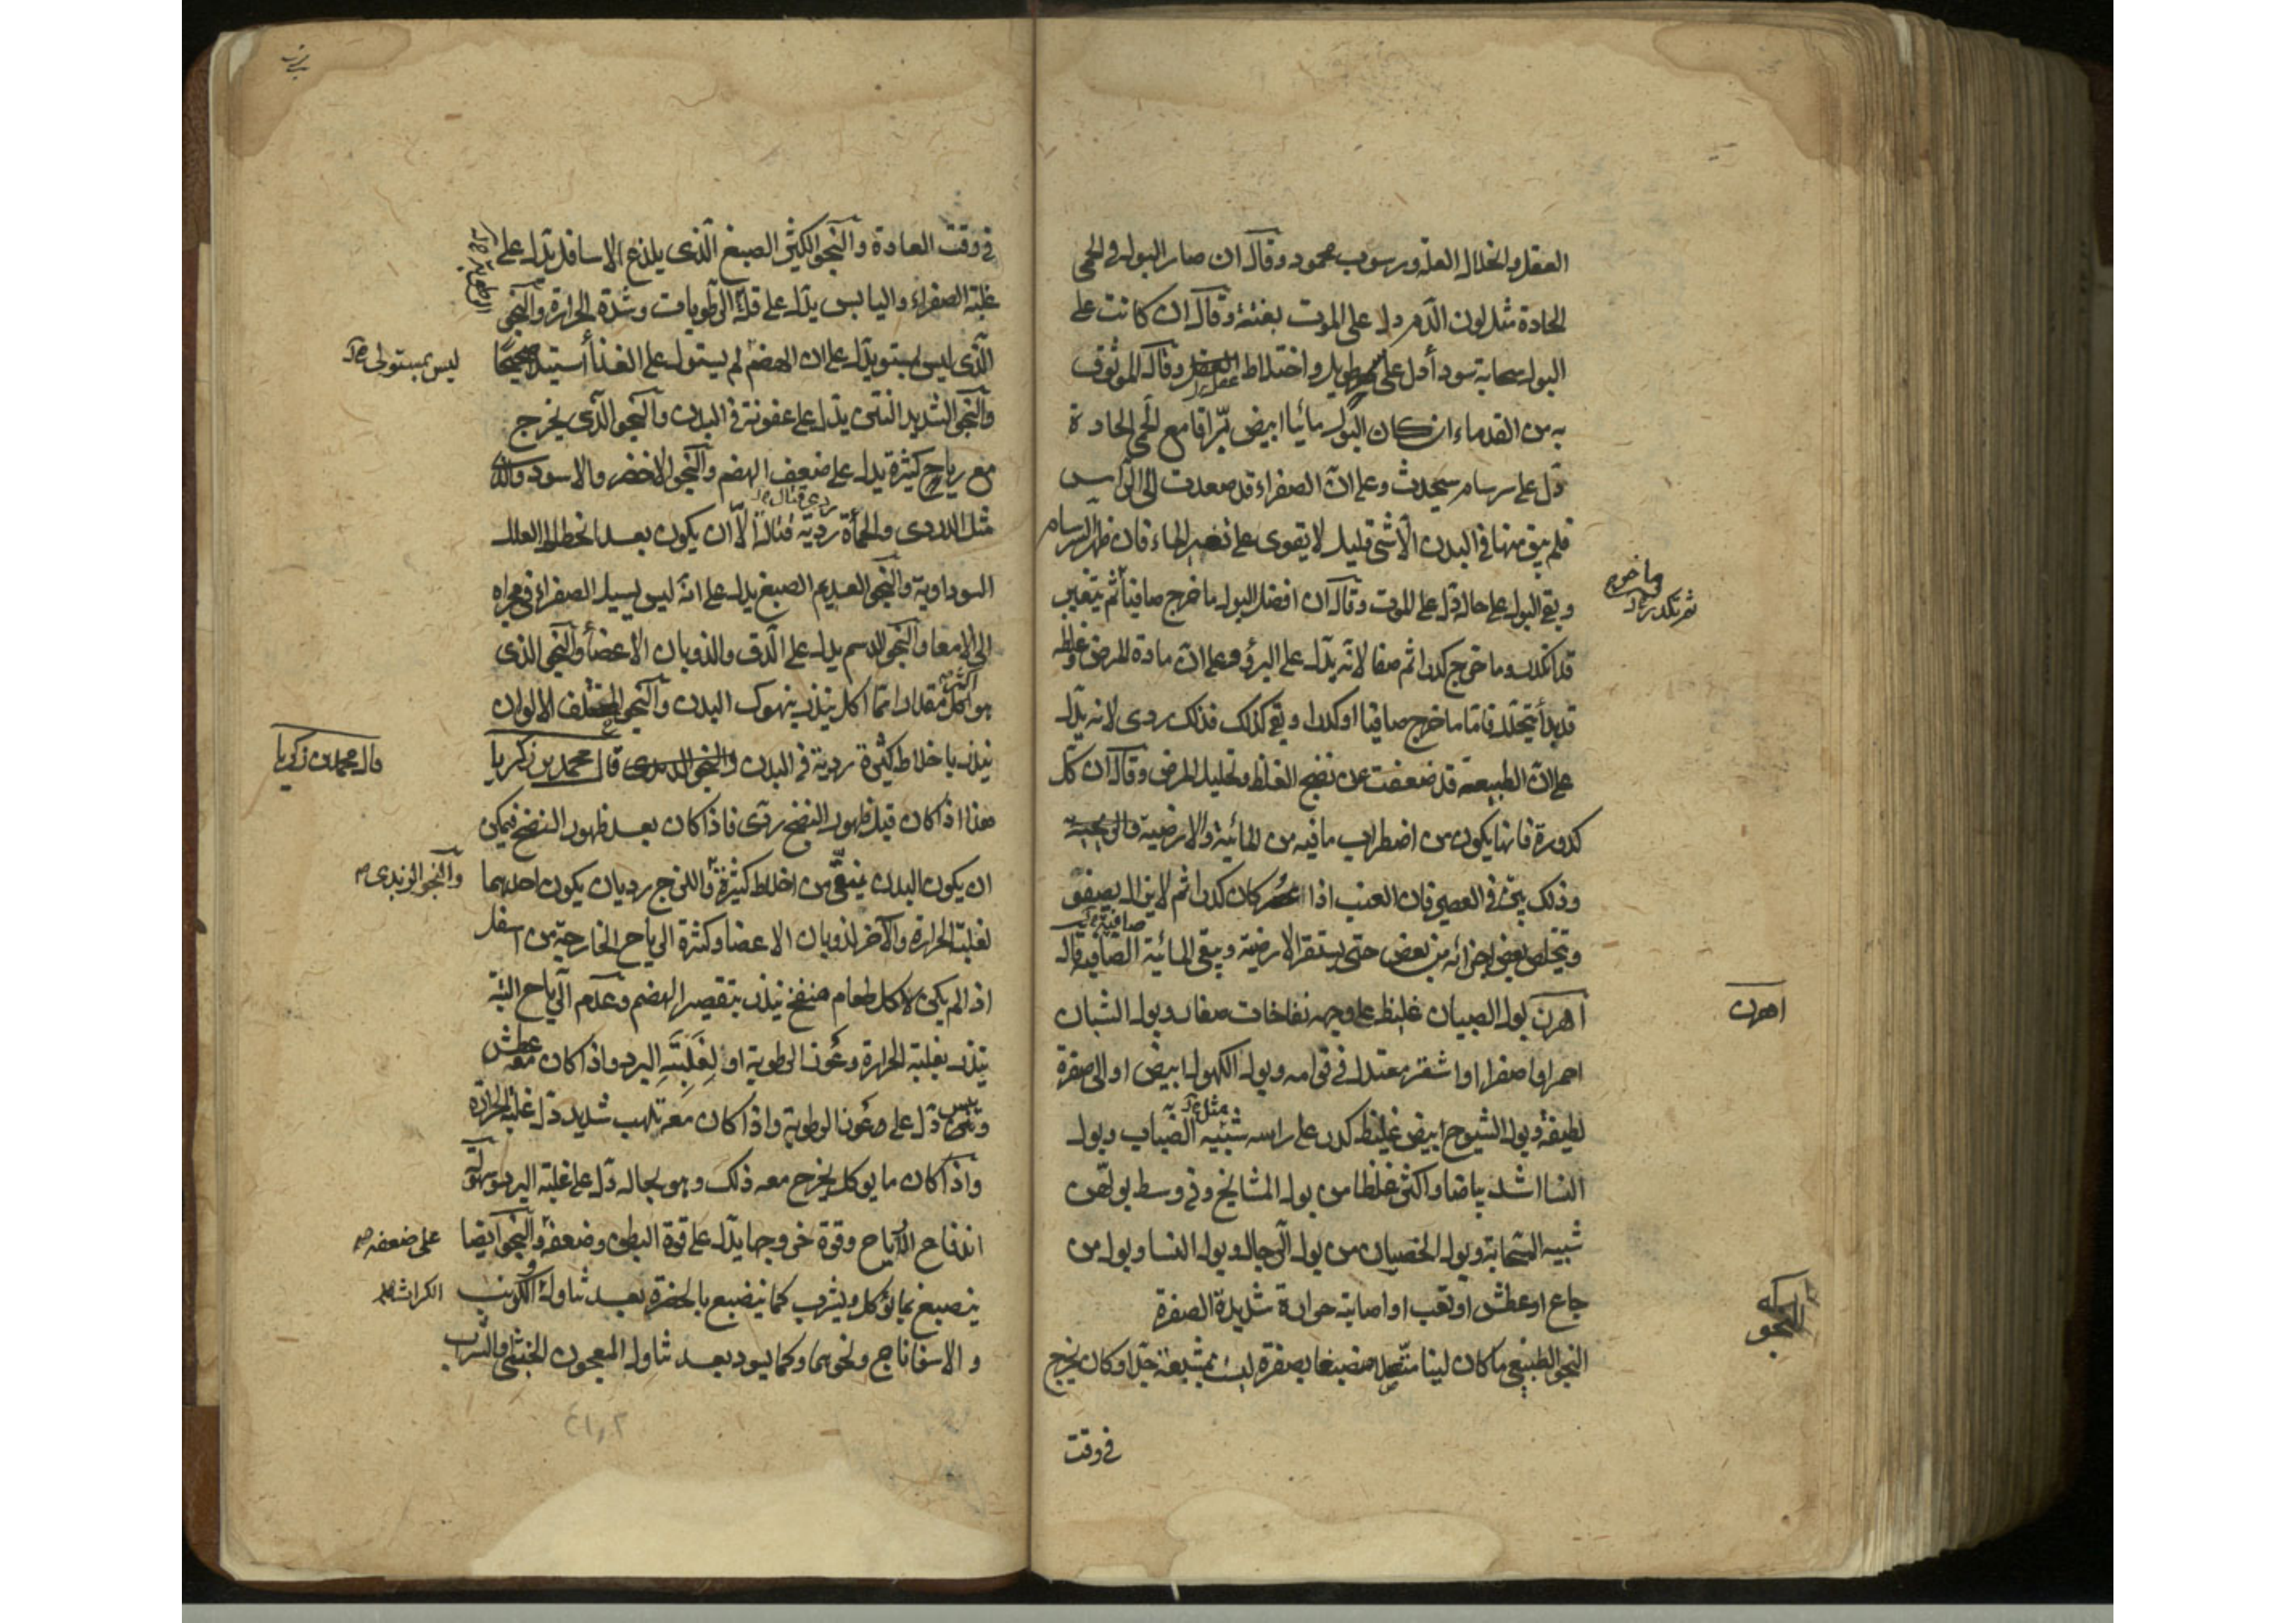 العقل وانحلال العلة ورسوب محمود وقال ان صار البول في الحمى
الحادة مثل لون الدم دل على الموت بغتة وقال ان كانت على
البول سحابة سوداء دل على طويل واختلاط العقل وقال الموثوق
عقل
به من القدماء ان كان البول مائيا ابيض براقا مع الحمى الحادة
دل على سرسام سيحدث وعلى ان الصفراء قد صعدت الى الراس
فلم يبق منها في البدن الا شي قليل لا يقوى على الماء فان ظهر السرسام
وبقي البول على حاله دل على الموت وقال ان افضل البول ما خرج صافيا ثم يتغير
وما خرج
ثم تكدر
قد وما خرج كدرا ثم صفا لانه يدل على البرؤ وعلى ان مادة المرض وغلظه
قد بدأ يتحلل فاما ما خرج صافيا او كدرا وبقي كذلك فذلك ردى لانه يدل
على ان الطبيعة قد ضعفت عن نضج الغلظ وتحليل المرض وقال ان كل
كدورة فانها يكون من اضطراب ما فيه من المائية والارضية
وذلك بين في العصير فان العنب اذا عصر كان كدرا ثم لا يزال يصفق
صافية
ويتخلص بعض اجزائه من بعض حتى يستقر الارضية ويبقى المائية الصافية قال
اهرن
اهرن بول الصبيان غليظ على وجهه نفاخات صغار وبول الشبان
احمر او اصفر او اشقر معتدل في قوامه وبول الكهول ابيض او الى صفرة
مثل
لطيفة وبول الشيوخ ابيض غليظ كدر على راسه شبيه الضباب وبول
النسا اشد بياضا واكثر غلظا من بول المشايخ وفي وسط بولهن
شبيه السحابة وبول الخصيان من بول الرجال وبول النسا وبول من
جاع او عطش او تعب او اصابته حرارة شديدة الصفرة
النجو
النجو الطبيعى ما كان لينا متصلا منصبغا بصفرة ليست بمشبعة جدا وكان يخرج
في وقت
في وقت العادة والنجو الكثير الصبغ الذى يلذع الاسافل يدل على
غلبة الصفراء واليابس يدل على قلة الرطوبات وشدة الحرارة والنجو
الذى ليس بمستو يدل على ان الهضم لم يستول على الغذا استيلا صحيحا
ليس بمستولى
والنجو الشديد النتن يدل على عفونة في البدن والنجو الذى يخرج
مع رياح كثيرة يدل على ضعف الهضم والنجو الاخضر والاسود والذى
ردى قتال
مثل الدردى والحمأة ردية قتالة الا ان يكون بعد انحطاط العلل
السوداوية والنجو العديم الصبغ يدل على انه ليس يسيل الصفراء في مجراه
الى الامعا والنجو الدسم يدل على الدق والذوبان الاعضأ والنجو الذى
اكثر
هو اكثر مقدارا مما اكل ينذر ينهوك البدن والنجو المختلف الالوان
ينذر باخلاط كثيرة ردية في البدن والنجو الزبدى قال محمد بن زكريا
قال محمد بن زكريا
هذا اذا كان قبل ظهور النضج ردى فاذا كان بعد ظهور النضج فيمكن
ان يكون البدن ينقى من اخلاط كثيرة واللزج رديان يكون احدهما
والنجو الزبدى
لغلبة الحرارة والآخر لذوبان الاعضا وكثرة الرياح الخارجة من اسفل
اذا لم يكن لاكل طعام منفخ ينذر بتقصير الهضم وعدم الرياح البتة
ينذر بغلبة الحرارة وعون الرطوبة او لغلبته البرد واذا كان معه عطش
ويبس دل على عون الرطوبة واذا كان معه تلهب شديد دل غلبة الحرارة
واذا كان ما يوكل يخرج معه ذلك وهو بحاله دل على غلبة البرد وسهولة
اندفاع الرياح وقوة خروجها يدل على قوة البطن وضعفه والنجو ايضا
على ضعفه
ينصبغ بما يؤكل ويشرب كما ينصبغ بالخضرة بعد تناول الكرنب
الكراث
والاسفاناج ونحوهما وكما يسود بعد تناول المعجون الخبثى والشراب